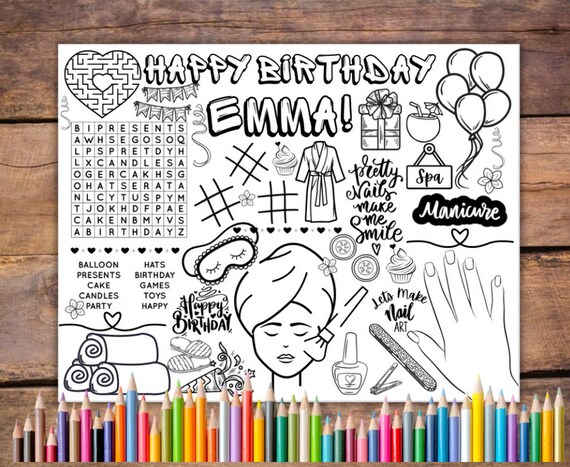 HAPPY BIRTHDAY
EMMA!
BIPRESENTS
AWHSEGOSOQ
LPSPRETDYH
LXCANDLESA
OGERCAKHSG
OHATSERATA
NLCYTUSPYM
TJOKHDFPAE
CAKENBMYVS
ABIRTHDAYZ
BALLOON
PRESENTS
CAKE
CANDLES
PARTY
HATS
BIRTHDAY
GAMES
TOYS
HAPPY
Pretty
Nails
make
me
Smile
Spa
Manicure
Happy
BIRTHDAY
Let's Make
Nail
ART